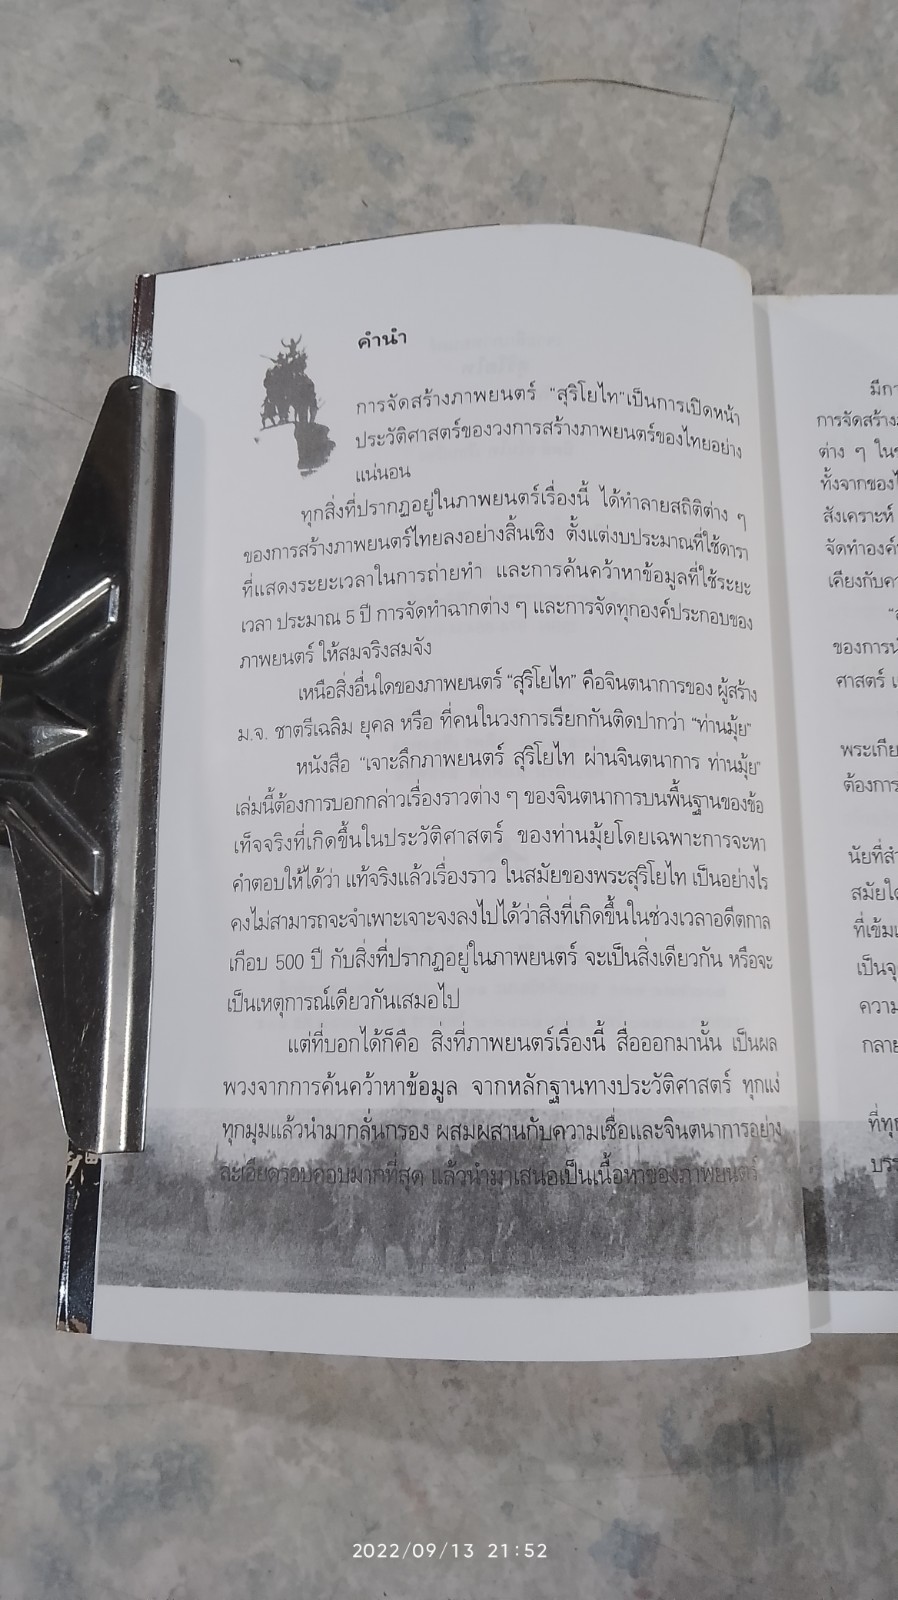 คำนำ
การจัดสร้างภาพยนตร์ "สุริโยไท"เป็นการเปิดหน้า
ประวัติศาสตร์ของวงการสร้างภาพยนตร์ของไทยอย่าง
แน่นอน
ทุกสิ่งที่ปรากฏอยู่ในภาพยนตร์เรื่องนี้ ได้ทำลายสถิติต่าง ๆ
ของการสร้างภาพยนตร์ไทยลงอย่างสิ้นเชิง ตั้งแต่งบประมาณที่ใช้ดารา
ที่แสดงระยะเวลาในการถ่ายทำ และการค้นคว้าหาข้อมูลที่ใช้ระยะ
เวลา ประมาณ 5 ปี การจัดทำฉากต่าง ๆ และการจัดทุกองค์ประกอบของ
ภาพยนตร์ ให้สมจริงสมจัง
เหนือสิ่งอื่นใดของภาพยนตร์ "สุริโยไท" คือจินตนาการของ ผู้สร้าง
ม.จ. ชาตรีเฉลิม ยุคล หรือ ที่คนในวงการเรียกกันติดปากว่า "ท่านมุ้ย"
หนังสือ "เจาะลึกภาพยนตร์ สุริโยไท ผ่านจินตนาการ ท่านมุ้ย"
เล่มนี้ต้องการบอกกล่าวเรื่องราวต่าง ๆ ของจินตนาการบนพื้นฐานของข้อ
เท็จจริงที่เกิดขึ้นในประวัติศาสตร์ ของท่านมุ้ยโดยเฉพาะการจะหา
คำตอบให้ได้ว่า แท้จริงแล้วเรื่องราว ในสมัยของพระสุริโยไท เป็นอย่างไร
คงไม่สามารถจะจำเพาะเจาะจงลงไปได้ว่าสิ่งที่เกิดขึ้นในช่วงเวลาอดีตกาล
เกือบ 500 ปี กับสิ่งที่ปรากฏอยู่ในภาพยนตร์ จะเป็นสิ่งเดียวกัน หรือจะ
เป็นเหตุการณ์เดียวกันเสมอไป
แต่ที่บอกได้ก็คือ สิ่งที่ภาพยนตร์เรื่องนี้ สื่อออกมานั้น เป็นผล
พวงจากการค้นคว้าหาข้อมูล จากหลักฐานทางประวัติศาสตร์ ทุกแง่
ทุกมุมแล้วนำมากลั่นกรอง ผสมผสานกับความเชื่อและจินตนาการอย่าง
ละเอียดรอบคอบมากที่สุด แล้วนำมาเสนอเป็นเนื้อหาของภาพยนตร์
มีกา
การจัดสร้าง
ต่าง ๆ ใน
ทั้งจากของ
สังเคราะห์
จัดทำองค์
เคียงกับ
ของการ
ศาสตร์
พระเกีย
ต้องการ
นัยที่สำ
สมัยใด
ที่เข้ม
เป็นจุ
ความ
กลาย
ที่ทุ
บรร
2022/09/13 21:52